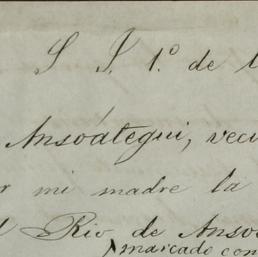 S. J. 1.º de l
Ansoátegui, veci
r mi madre la
l Rio de Anso
marcado con